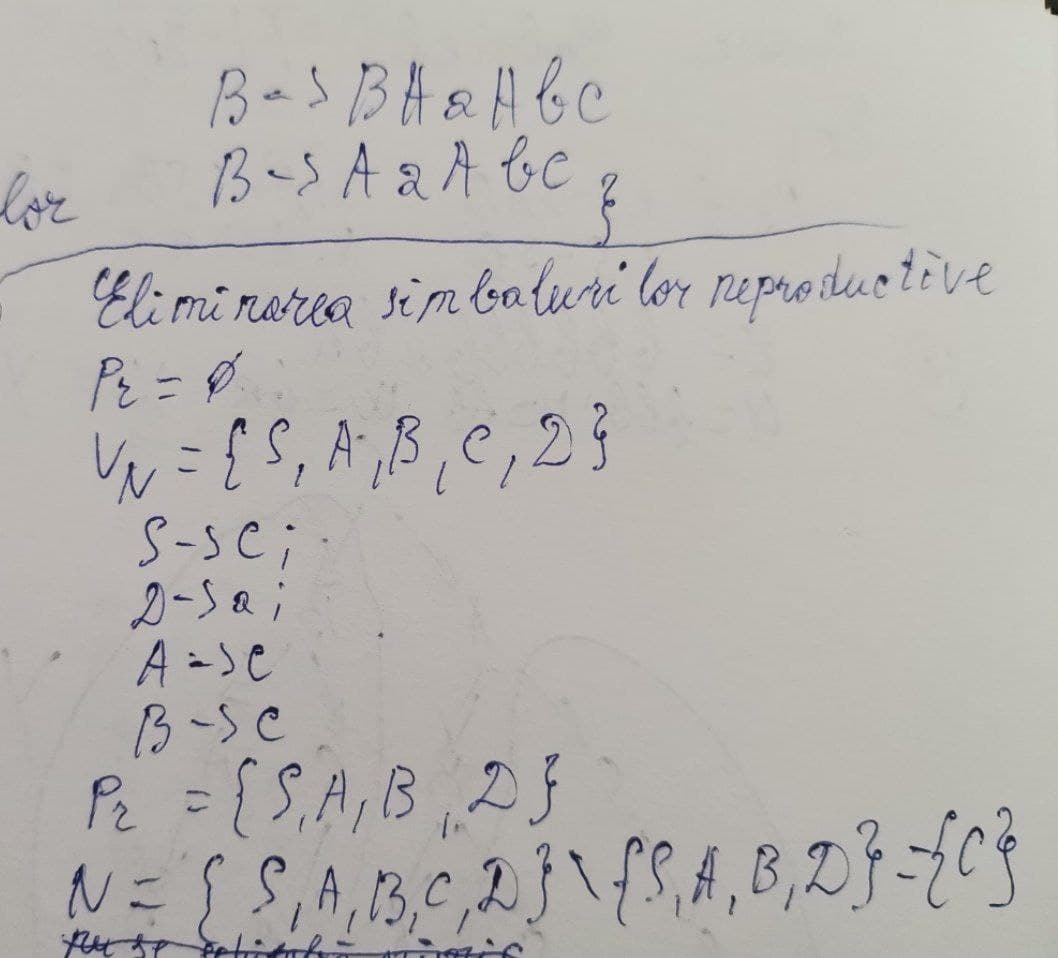 B -> BAaAbC
B -> AaAbC }
lor
Eliminarea simbolurilor neproductive
Pr = ∅
VN = {S, A, B, C, D}
S -> c;
D -> a;
A -> c
B -> c
Pr = {S, A, B, D}
N = {S, A, B, C, D} \ {S, A, B, D} = {C}